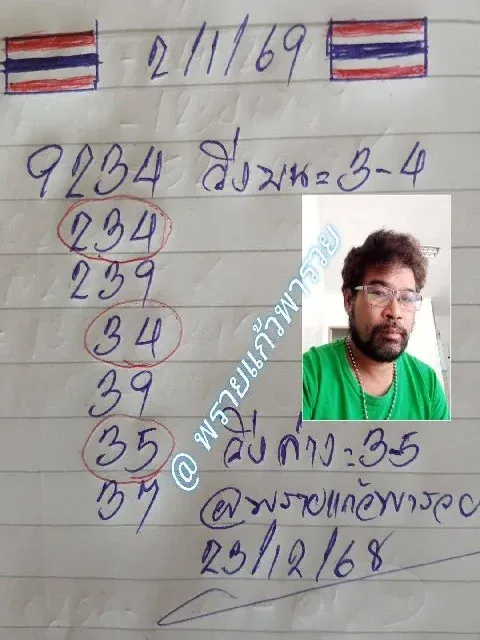 2/1/69
9234 วิ่งบน=3-4
234
239
34
39
35 วิ่งล่าง=3-5
37 @พรายแก้วพารวย
23/12/68
@ พรายแก้วพารวย